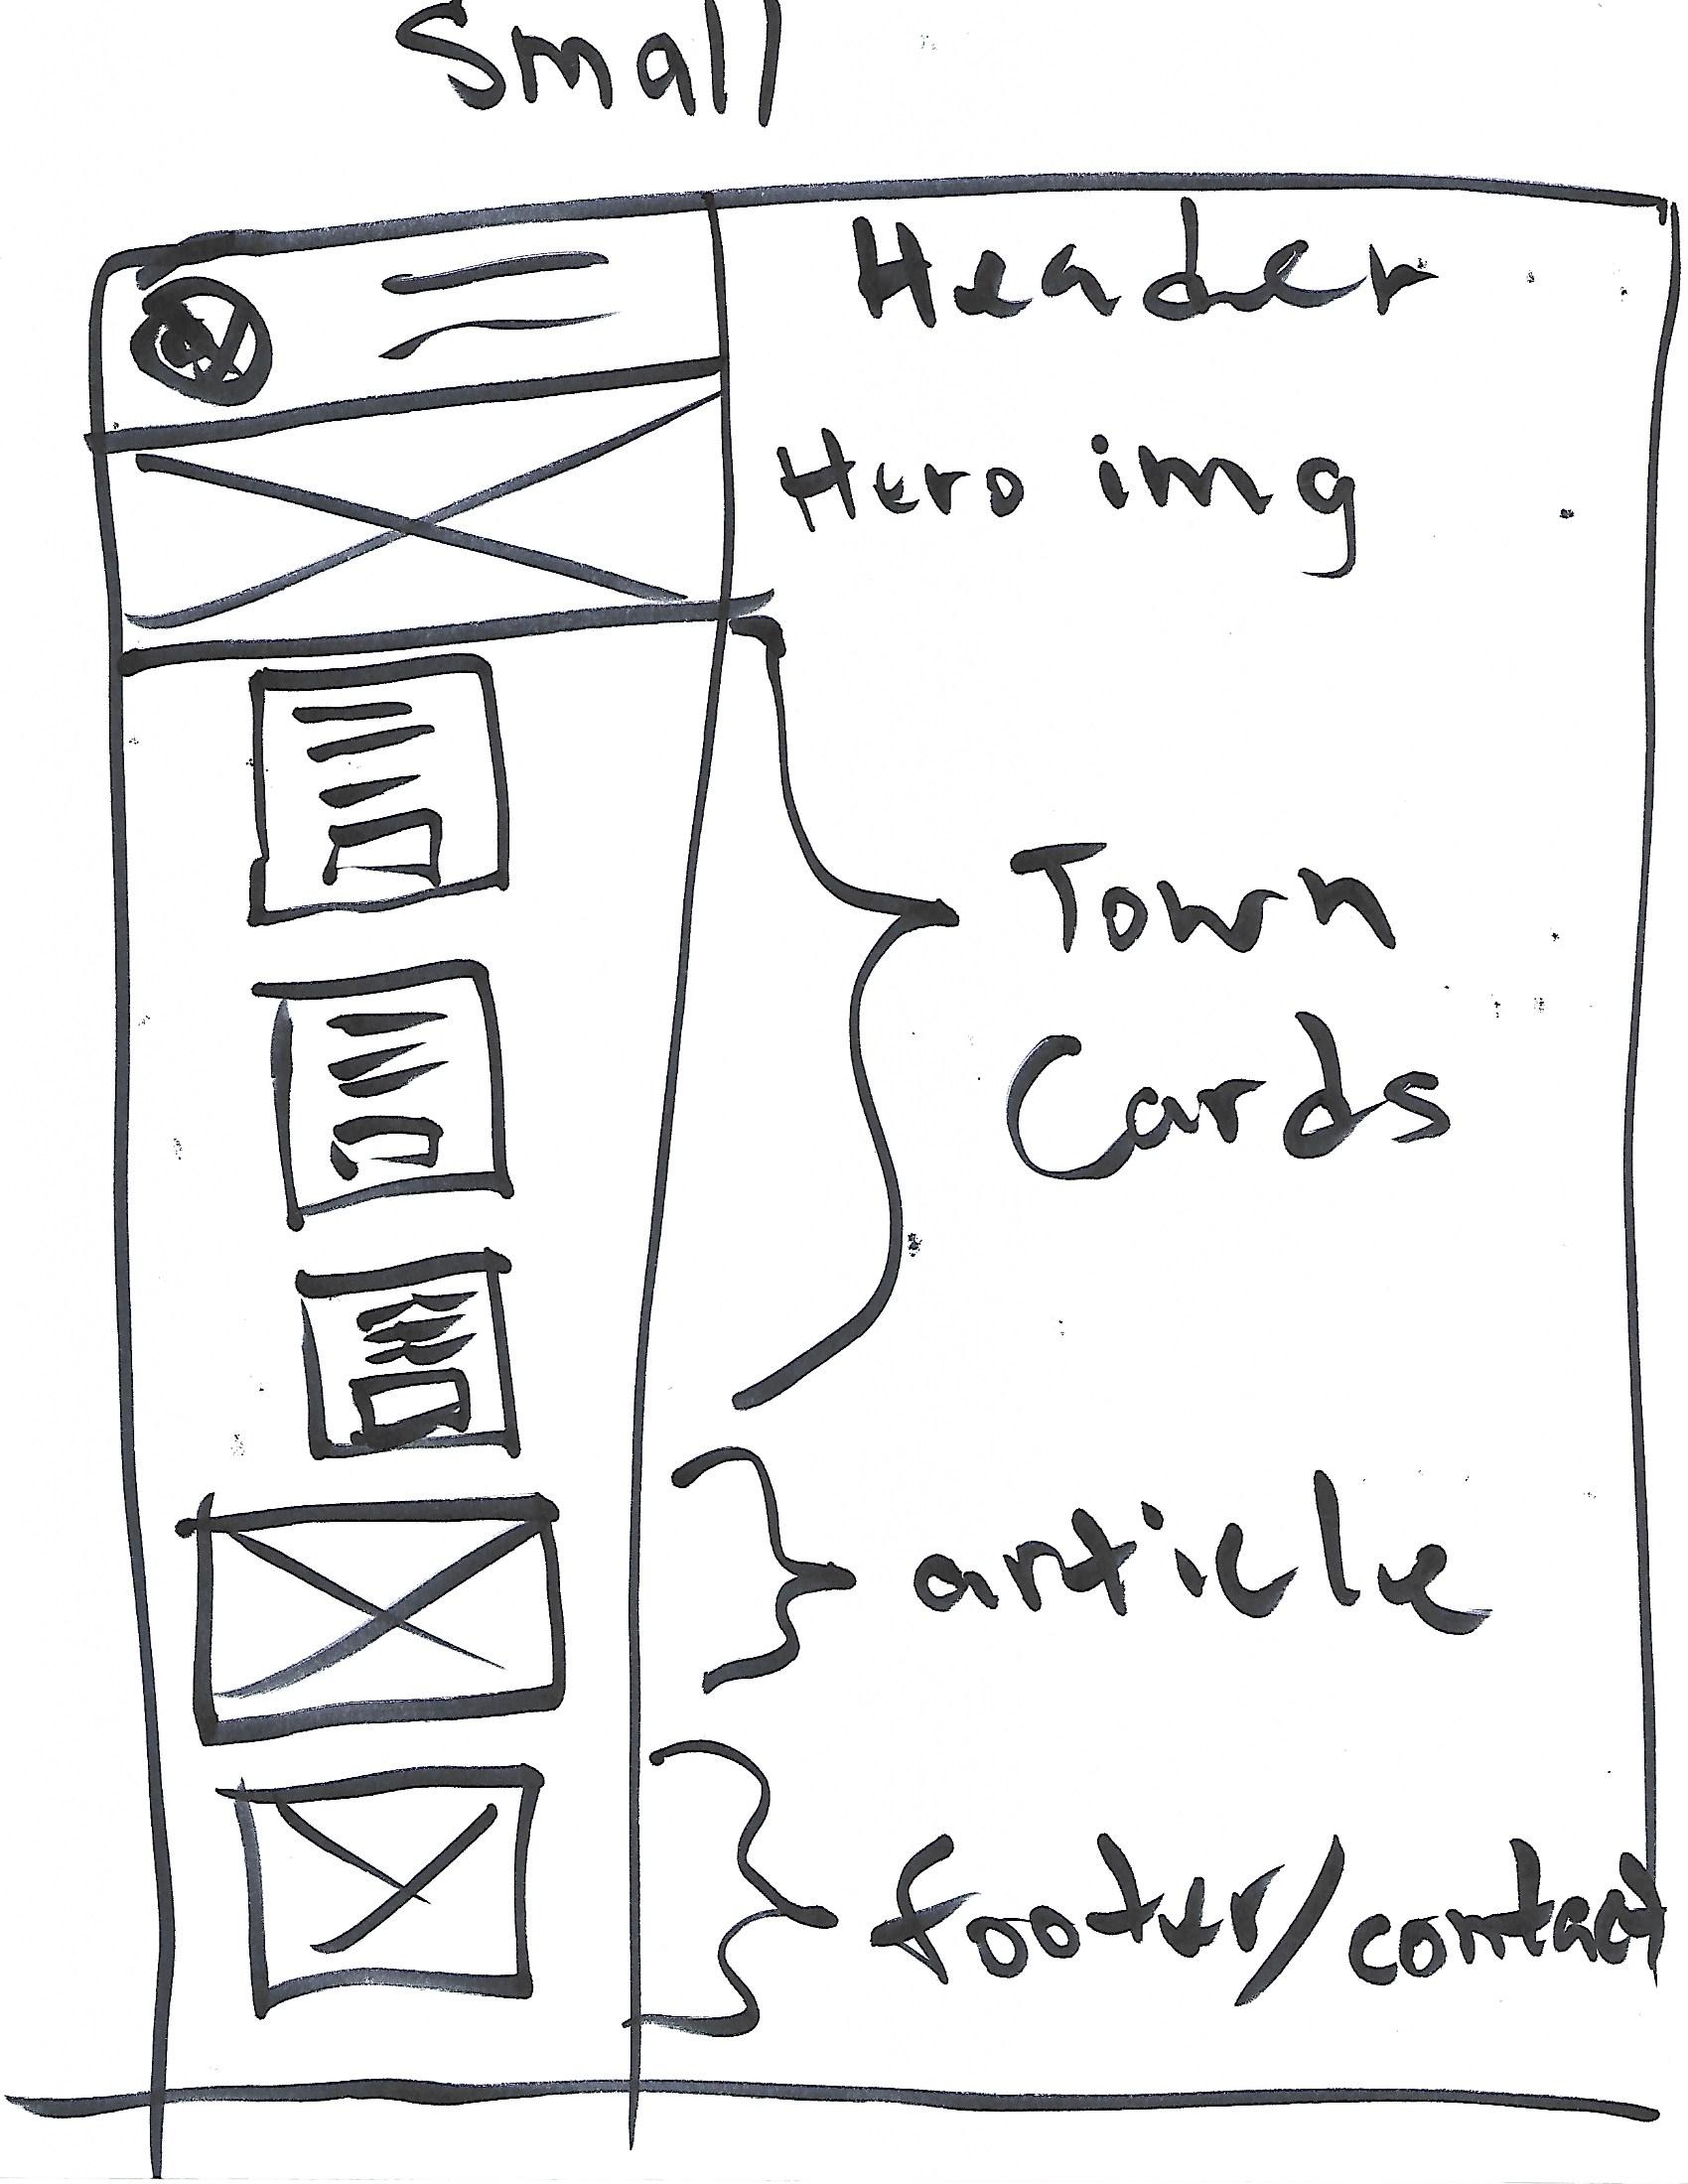 Small
Header
Hero img
Town
Cards
article
footer/contact